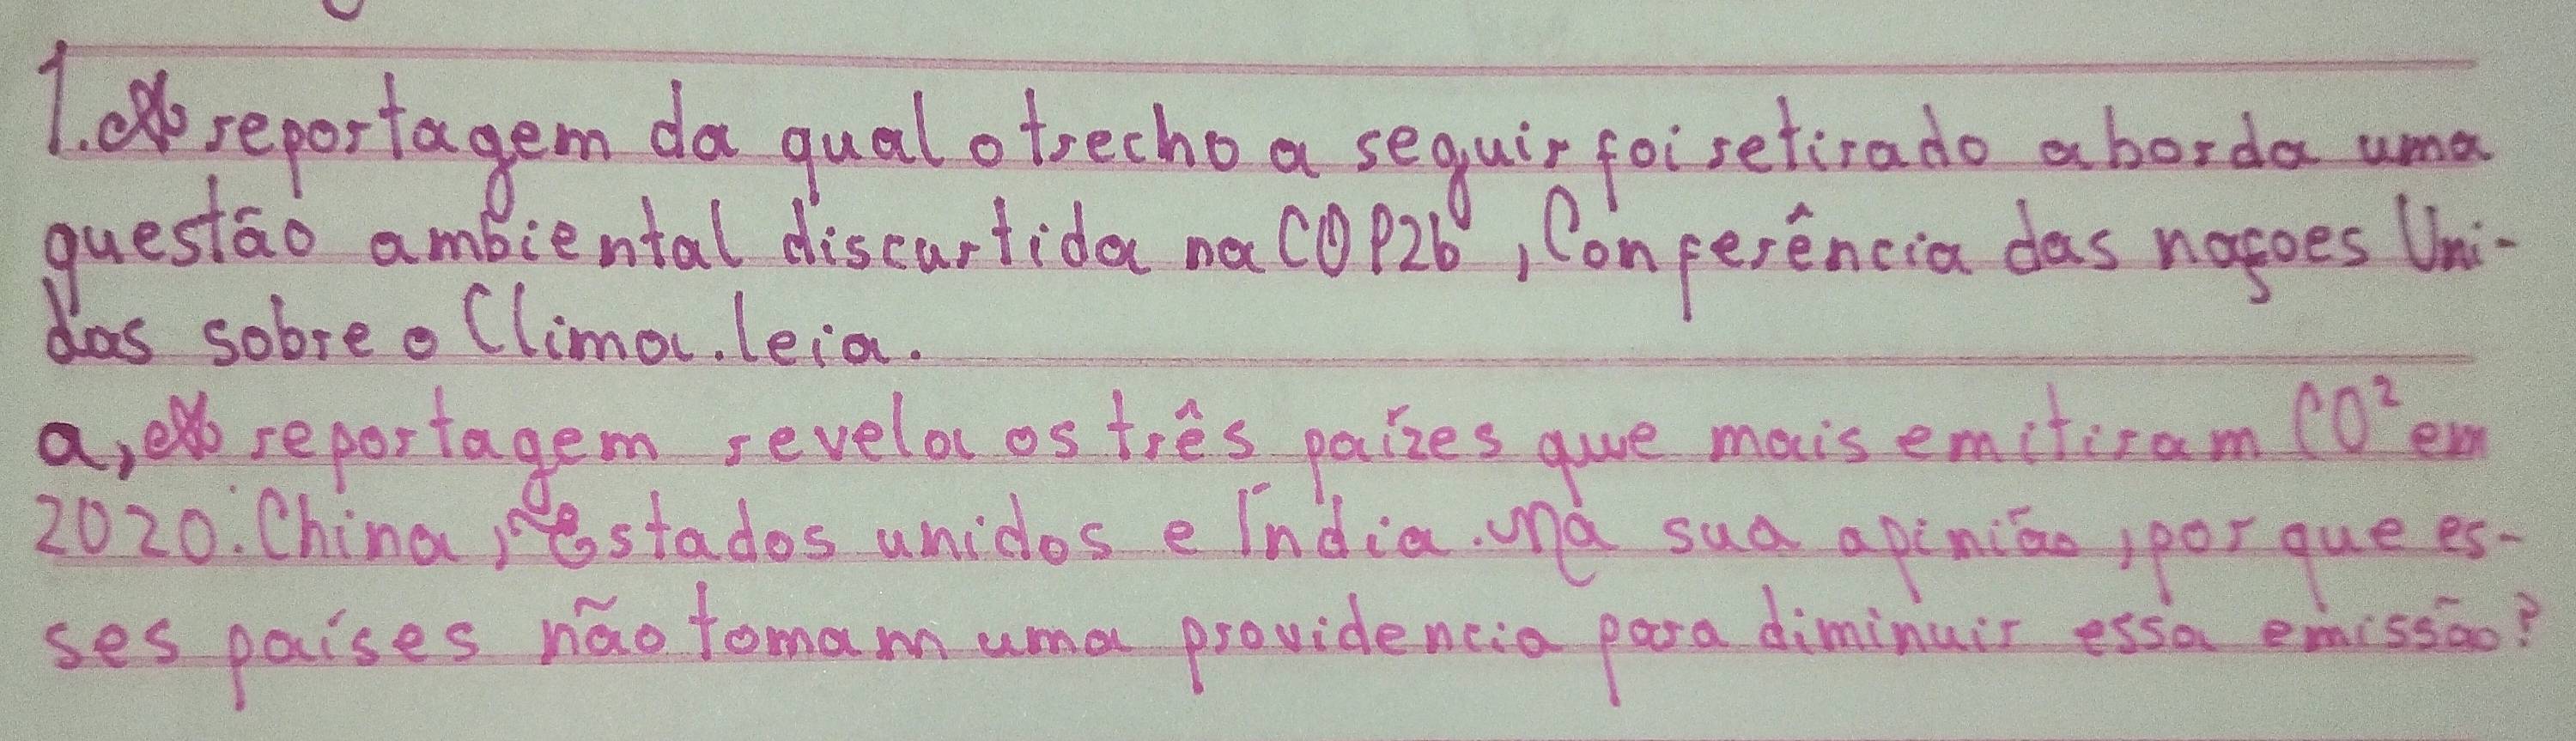 1. A reportagem da qual o trecho a seguir foi retirado aborda uma
questão ambiental discurtida na COP26, Conferência das naçoes Uni-
das sobre o Clima. leia.
a, A reportagem revela os três paízes que mais emitiram CO² em
2020: China, Estados unidos e Índia. Na sua apinião, por que es-
ses países não tomam uma providencia para diminuir essa emissão?